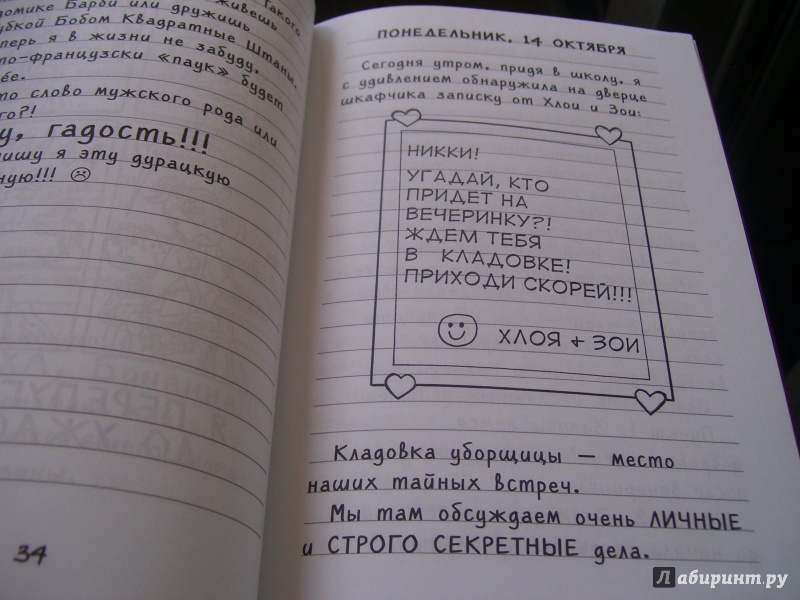 Такого
живешь
домике Барби или дружишь
Губкой Бобом Квадратные Штаны.
теперь я в жизни не забуду,
по-французски «паук» будет
то слово мужского рода или
гадость!!!
пишу я эту дурацкую
ную!!! ☹
34
ПОНЕДЕЛЬНИК, 14 ОКТЯБРЯ
Сегодня утром, придя в школу, я
с удивлением обнаружила на дверце
шкафчика записку от Хлои и Зои:
НИККИ!
УГАДАЙ, КТО
ПРИДЕТ НА
ВЕЧЕРИНКУ?!
ЖДЕМ ТЕБЯ
В КЛАДОВКЕ!
ПРИХОДИ СКОРЕЙ!!!
ХЛОЯ + ЗОИ
Кладовка уборщицы — место
наших тайных встреч.
Мы там обсуждаем очень ЛИЧНЫЕ
и СТРОГО СЕКРЕТНЫЕ дела.
Лабиринт.ру